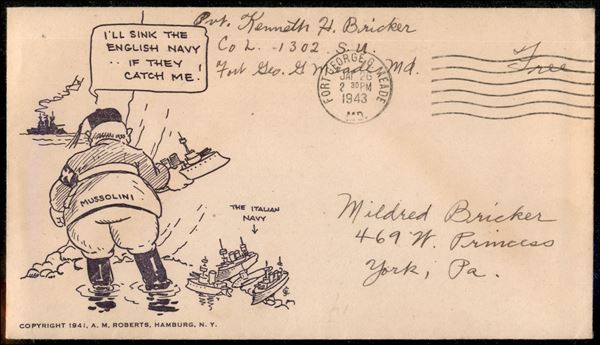 I'LL SINK THE
ENGLISH NAVY
.. IF THEY
CATCH ME!
Pvt. Kenneth H. Bricker
Co L. - 1302 S. U.
Fort Geo. G Meade, Md.
FORT GEORGE G MEADE
JAN 26
2 30 PM
1943
MD.
Free
MUSSOLINI
THE ITALIAN
NAVY
Mildred Bricker
469 W. Princess
York, Pa.
COPYRIGHT 1941, A. M. ROBERTS, HAMBURG, N. Y.